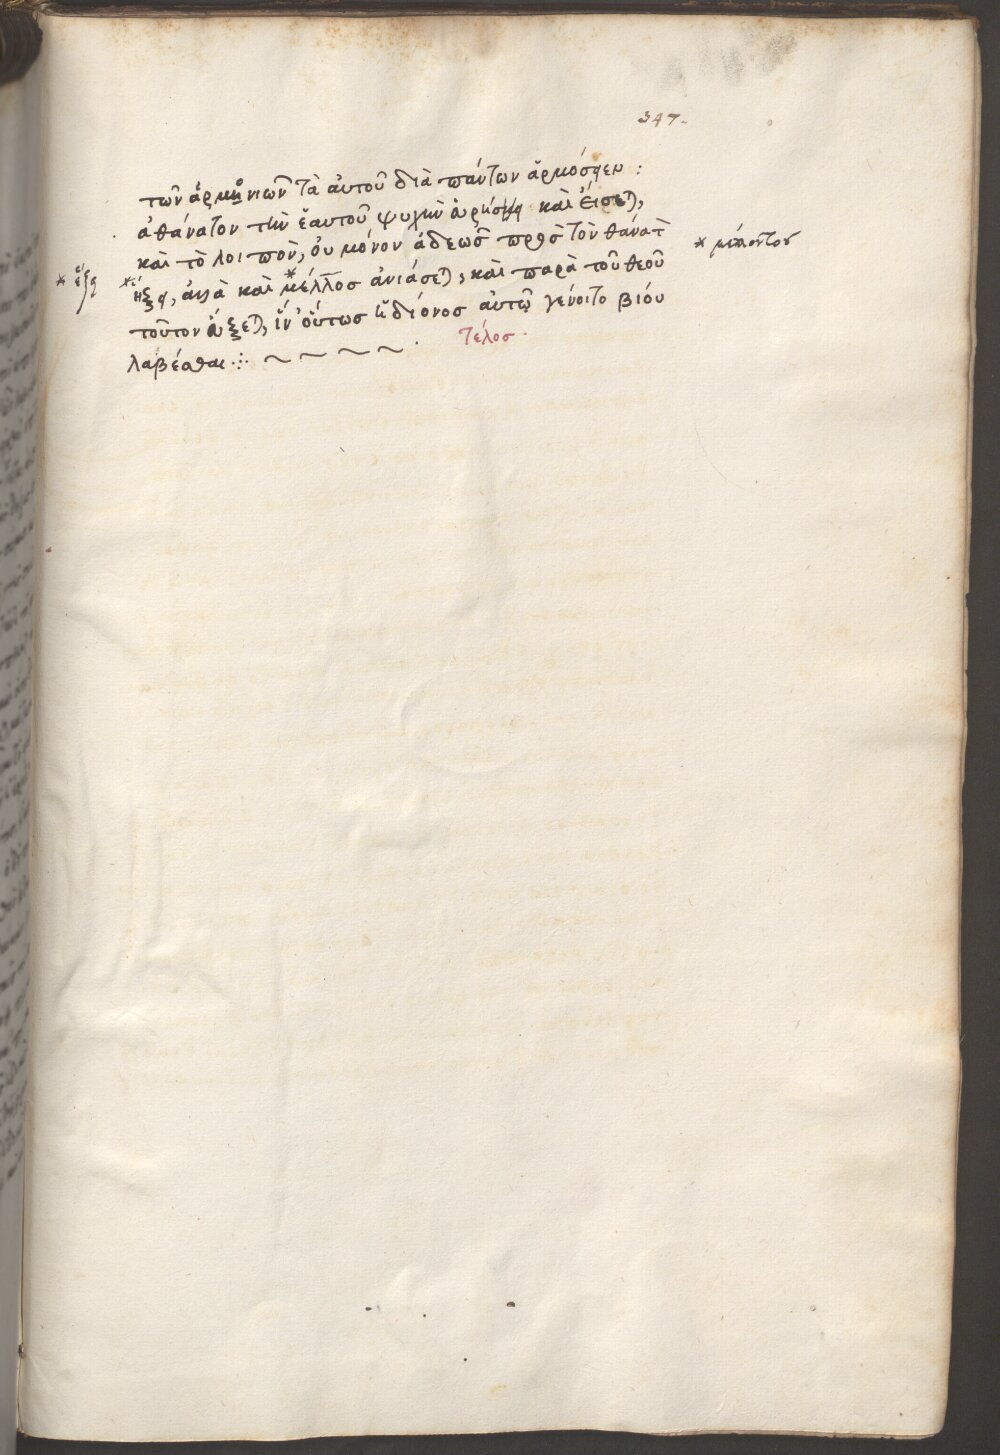 347.
τῶν ἁρμονιῶν τὰ αὐτοῦ διὰ πάντων ἁρμόσῃεν :
ἀθάνατον τὴν ἑαυτοῦ ψυχὴν καὶ
καὶ τὸ λοιπὸν, οὐ μόνον ἀδεῶς πρὸς τὸν θάνατ
* ἕξει
* μέλλοντος
ἥξει, ἀλλὰ καὶ * μέλλος ἀνιάσεται, καὶ παρὰ τοῦ θεοῦ
τοῦτον ἄξεται, ἵν' οὕτως ἡδίονος αὐτῷ γένοιτο βίου
λαβέσθαι ⁘ ~ ~ ~ ~ . τέλος .